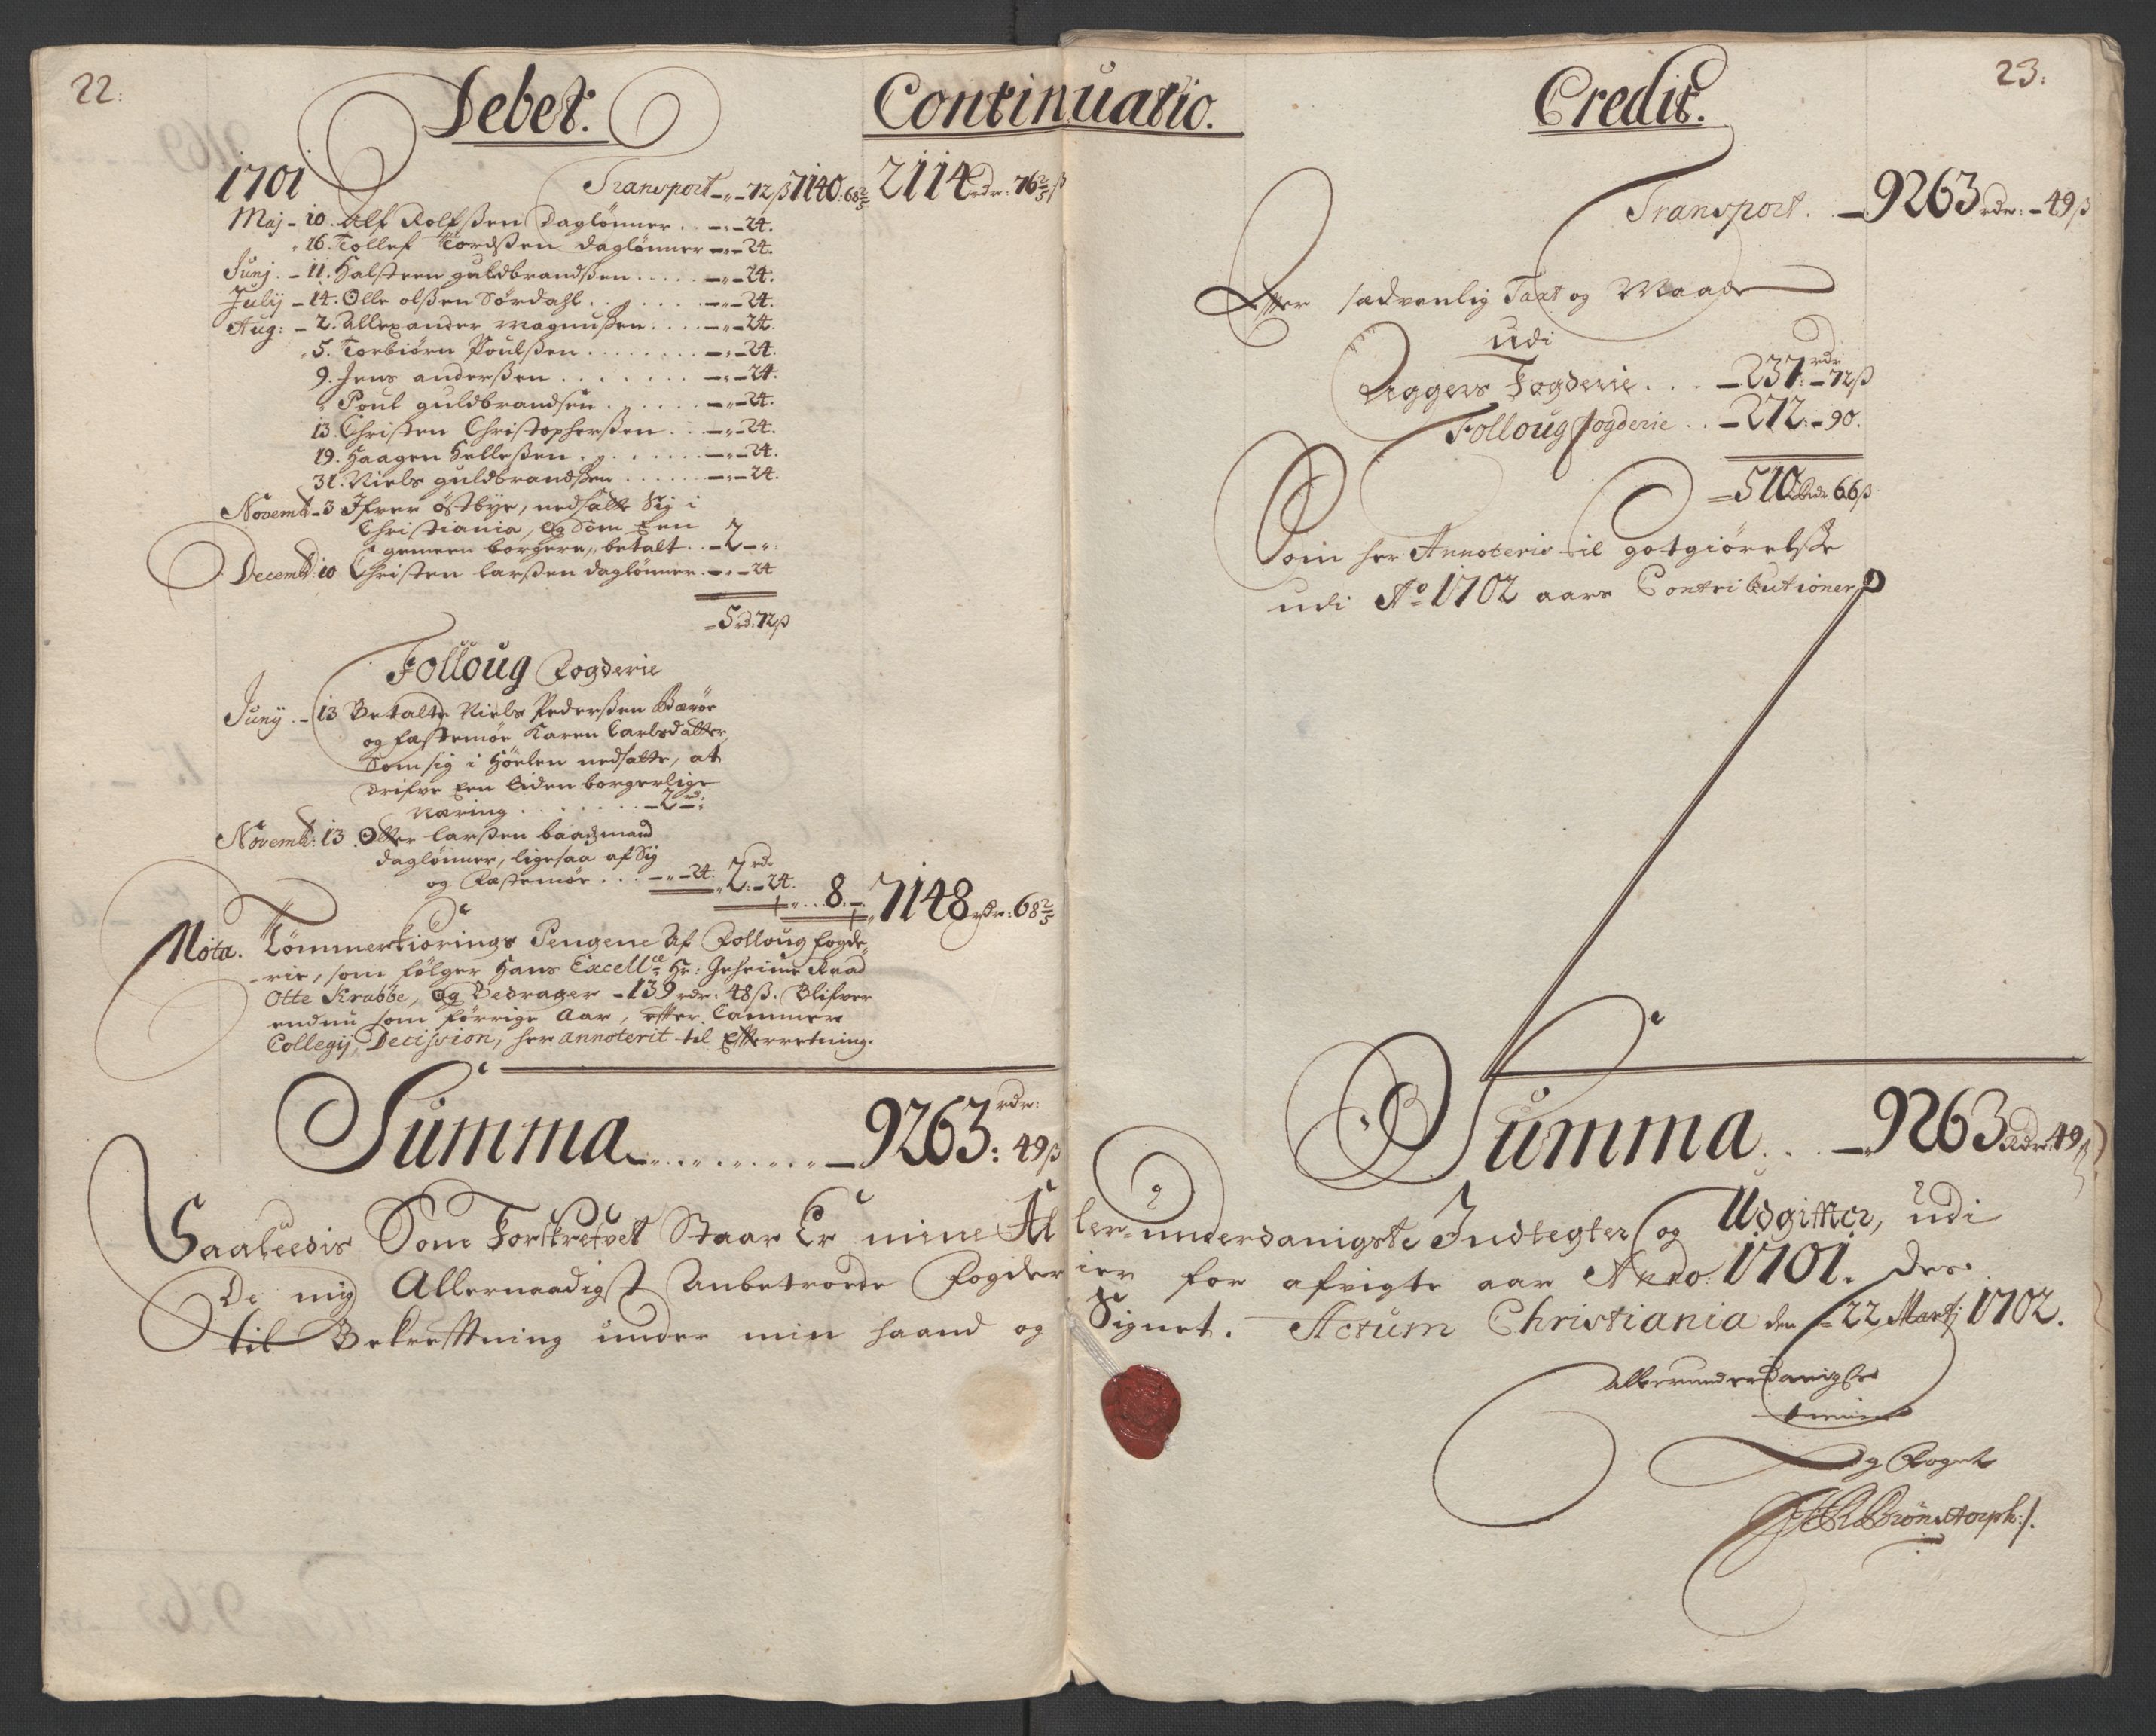 22.
Debet.
Continuatio.
1701
Transport - „ - 72 ß 7140 : 68 2/5 2114 rdr. 76 2/5 ß
Maj - 10. Alf Rolfßen Daglønner . . - „ - 24.
„ 16. Tollef Tordßen daglønner - „ - 24.
Junj. - 11. Halsteen guldbrandßen . . . . . - „ - 24.
Julij - 14. Olle olßen Sørdahl . . . . . . - „ - 24.
Aug: - 2. Allexander Magnußen . . . . - „ - 24.
„ 5. Torbiørn Poulßen . . . . . . . . - „ - 24.
9. Jens anderßen . . . . . . . - „ - 24.
„ Poul guldbrandsen . . . . . - „ - 24.
13. Christen Christopherßen . . - „ - 24.
19. Haagen Helleßen . . . . . . . - „ - 24.
31. Niels guldbrandßen . . . . . . - „ - 24.
Novemb - 3 Ifver østbye, nedsatte Sig i
Christiania, og Som Een
gemeen borgere, betalt . . - 2 - „ .
Decemb: 10 Christen larßen daglønner . - „ - 24
- 5 rd. 72 ß
Folloug Fogderie
Junij. - 13 Betalte Niels Pederßen
og fæstemøe Karen Carlsdatter,
Som sig i Høelen nedsatte, at
drifve Een liden borgerlige
Næring . . . . . . . . - 2 rd:
Novemb: 13. Otter larßen baadzmand
daglønner, ligesaa af Sig
og Fæstemøe . . . - „ - 24: 2 rdr - 24.
„ . . . 8. - . 7148 rdr. : 68 2/5
Nota. Tømmerkiørings Pengene Af Folloug fogde„
- rie, som følger Hans Excell ce Hr: Geheime Raad
Otte Krabbe, og Bedrager - 139 rdr. 48 ß. Blifver
endnu som førrige Aar, efter Cammer
Collegij, Decission, her annoterit til Efterretning.
Summa . . . . . . . . . . - 9263 rdr: 49 ß
23.
Credit.
Transport . . - 9263 rdr: - 49 ß
Efter sædvanlig Taxt og Maade
udi
Aggers Fogderie . . . - 237 rdr - 72 ß
Folloug fogderie . . - 272. - 90.
- 510 Rdr 66 ß
Som her Annoteris til gotgiørelße
udi Ao 1702 aars Contributioner
Summa . . . - 9263 Rdr 49 ß
Saaleedis Som Forskrefvet Staar Er mine Aller-underdanigste Indtegter og Udgifter, udi
De mig Allernaadigst Anbetroede Fogderier for afvigte aar Anno 1701. Des
til Bekreftning under min haand og Signet. Actum Christiania den 22 Martj 1702.
Allerunderdanigste
og Foget